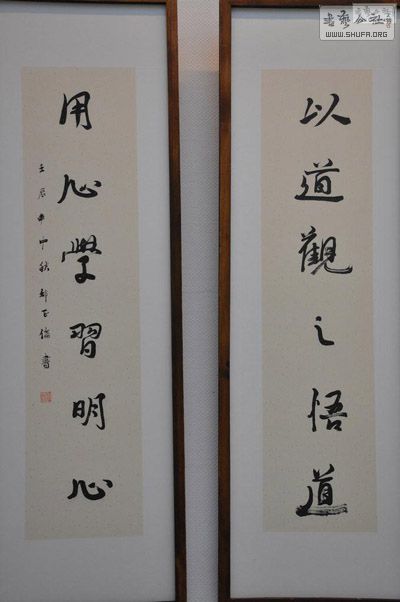 書藝公社
WWW.SHUFA.ORG
以道觀之悟道
用心學習明心
壬辰年中秋 書